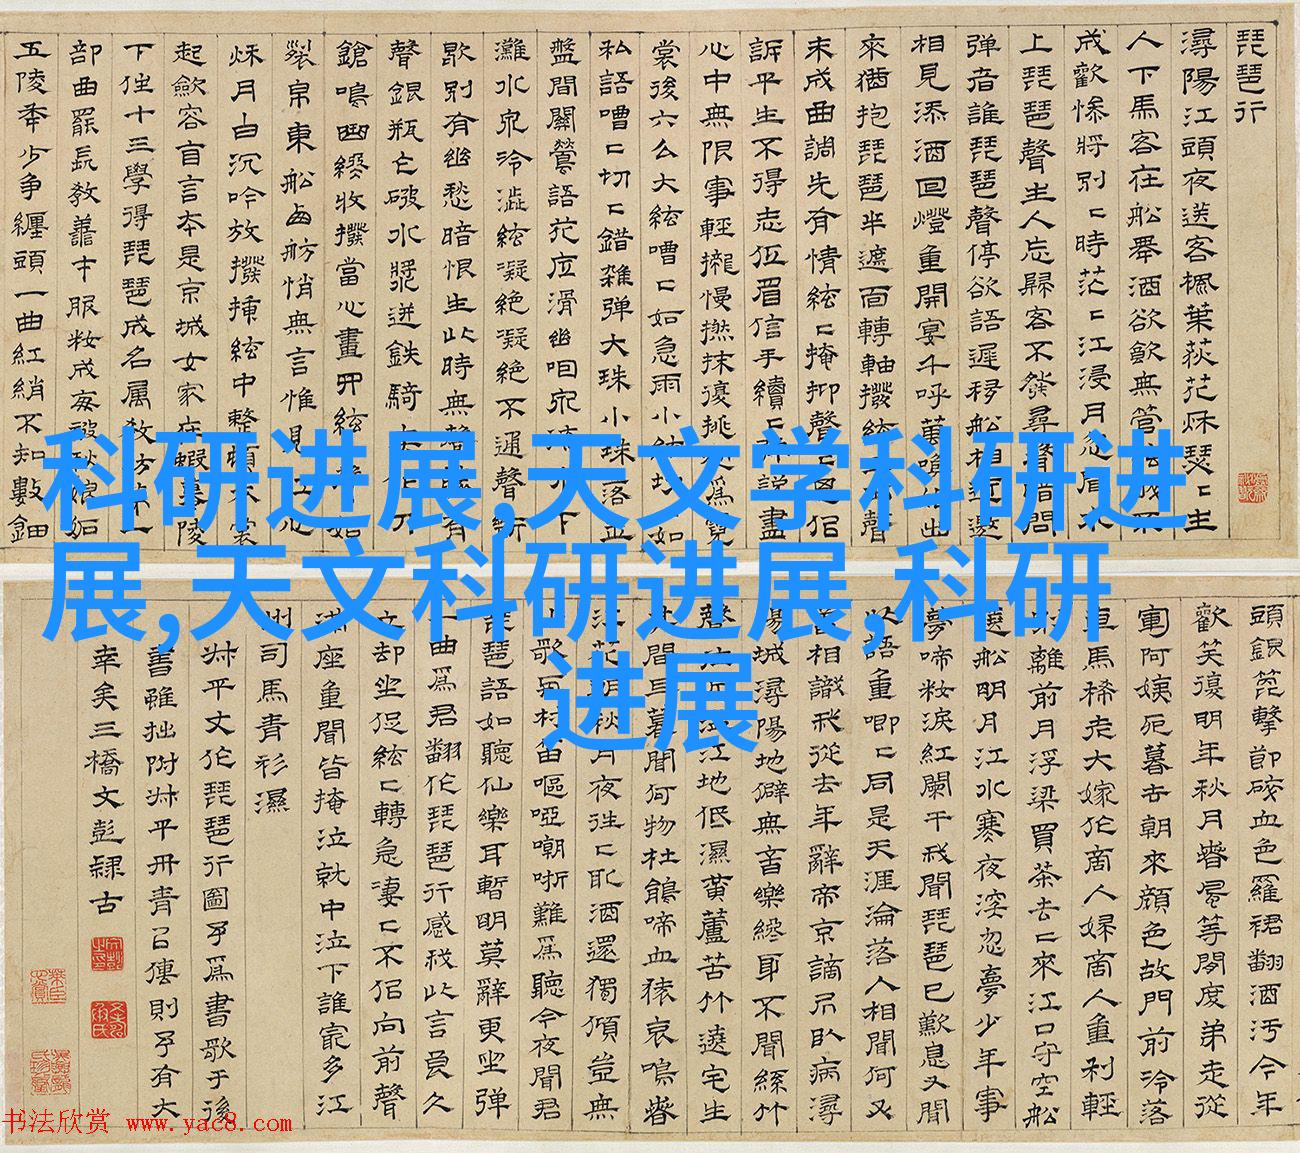 琵琶行
潯陽江頭夜送客楓葉荻花秋瑟〻主
人下馬客在船舉酒欲飲無管
成歡慘將別〻時茫〻江浸月忽聞水
上琵琶聲主人忘歸客不發尋聲暗問
彈者誰琵琶聲停欲語遲移船相近邀
相見添酒回燈重開宴千呼萬喚始出
來猶抱琵琶半遮面轉軸撥絃聲
未成曲調先有情絃〻掩抑聲思佀
訴平生不得志低眉信手續〻彈說盡
心中無限事輕攏慢撚抹復挑為霓
裳後六么大絃嘈〻如急雨小絃切〻如
私語嘈〻切〻錯雜彈大珠小珠落玉
盤間關鶯語花底滑幽咽泉下
灘水泉冷澀絃凝絕凝絕不通聲漸
歇別有幽愁暗恨生此時無聲勝有
聲銀瓶乍破水漿迸鉄騎刀
鎗鳴曲終收撥當心畫四絃如
裂帛東船西舫悄無言惟見江心
秋月白沉吟放撥插絃中整頓衣裳
起斂容自言本是京城女家在蝦蟇陵
下住十三學得琵琶成名属教坊第一
部曲罷長教善才服妝成每被秋娘妬
五陵年少爭纏頭一曲紅綃不知數鈿
科研进展,天文学科研进
展,天文科研进展,科研
进展
頭銀篦擊節碎血色羅裙翻酒汚今年
歡笑復明年秋月春風等閒度弟走從
軍阿姨死暮去朝來顏色故門前冷落
車馬稀老大嫁作商人婦商人重利輕
別離前月浮梁買茶去〻來江口守空船
遶船明月江水寒夜深忽夢少年事
夢啼妝淚紅闌干我聞琵琶已歎息又聞
此語重唧〻同是天涯淪落人相聞何必
曾相識我從去年辭帝京謫居臥病潯
陽城潯陽地僻無音樂終歲不聞絲竹
聲住近湓江地低濕黃蘆苦竹遶宅生
其間旦暮聞何物杜鵑啼血猿哀鳴春
江花朝秋月夜往〻取酒還獨傾豈無
山歌與村笛嘔啞嘲哳難為聽今夜聞君
琵琶語如聽仙樂耳暫明莫辭更坐彈
一曲為君翻作琵琶行感我此言良久
立却坐促絃〻轉急淒〻不佀向前聲
滿座重聞皆掩泣就中泣下誰寃多江
州司馬青衫濕
叔平丈作琵琶行圖予為書歌于後
書雖拙附叔平丹青㠯傳則予有大
幸矣三橋文彭隸古
书法欣赏 www.yac8.com